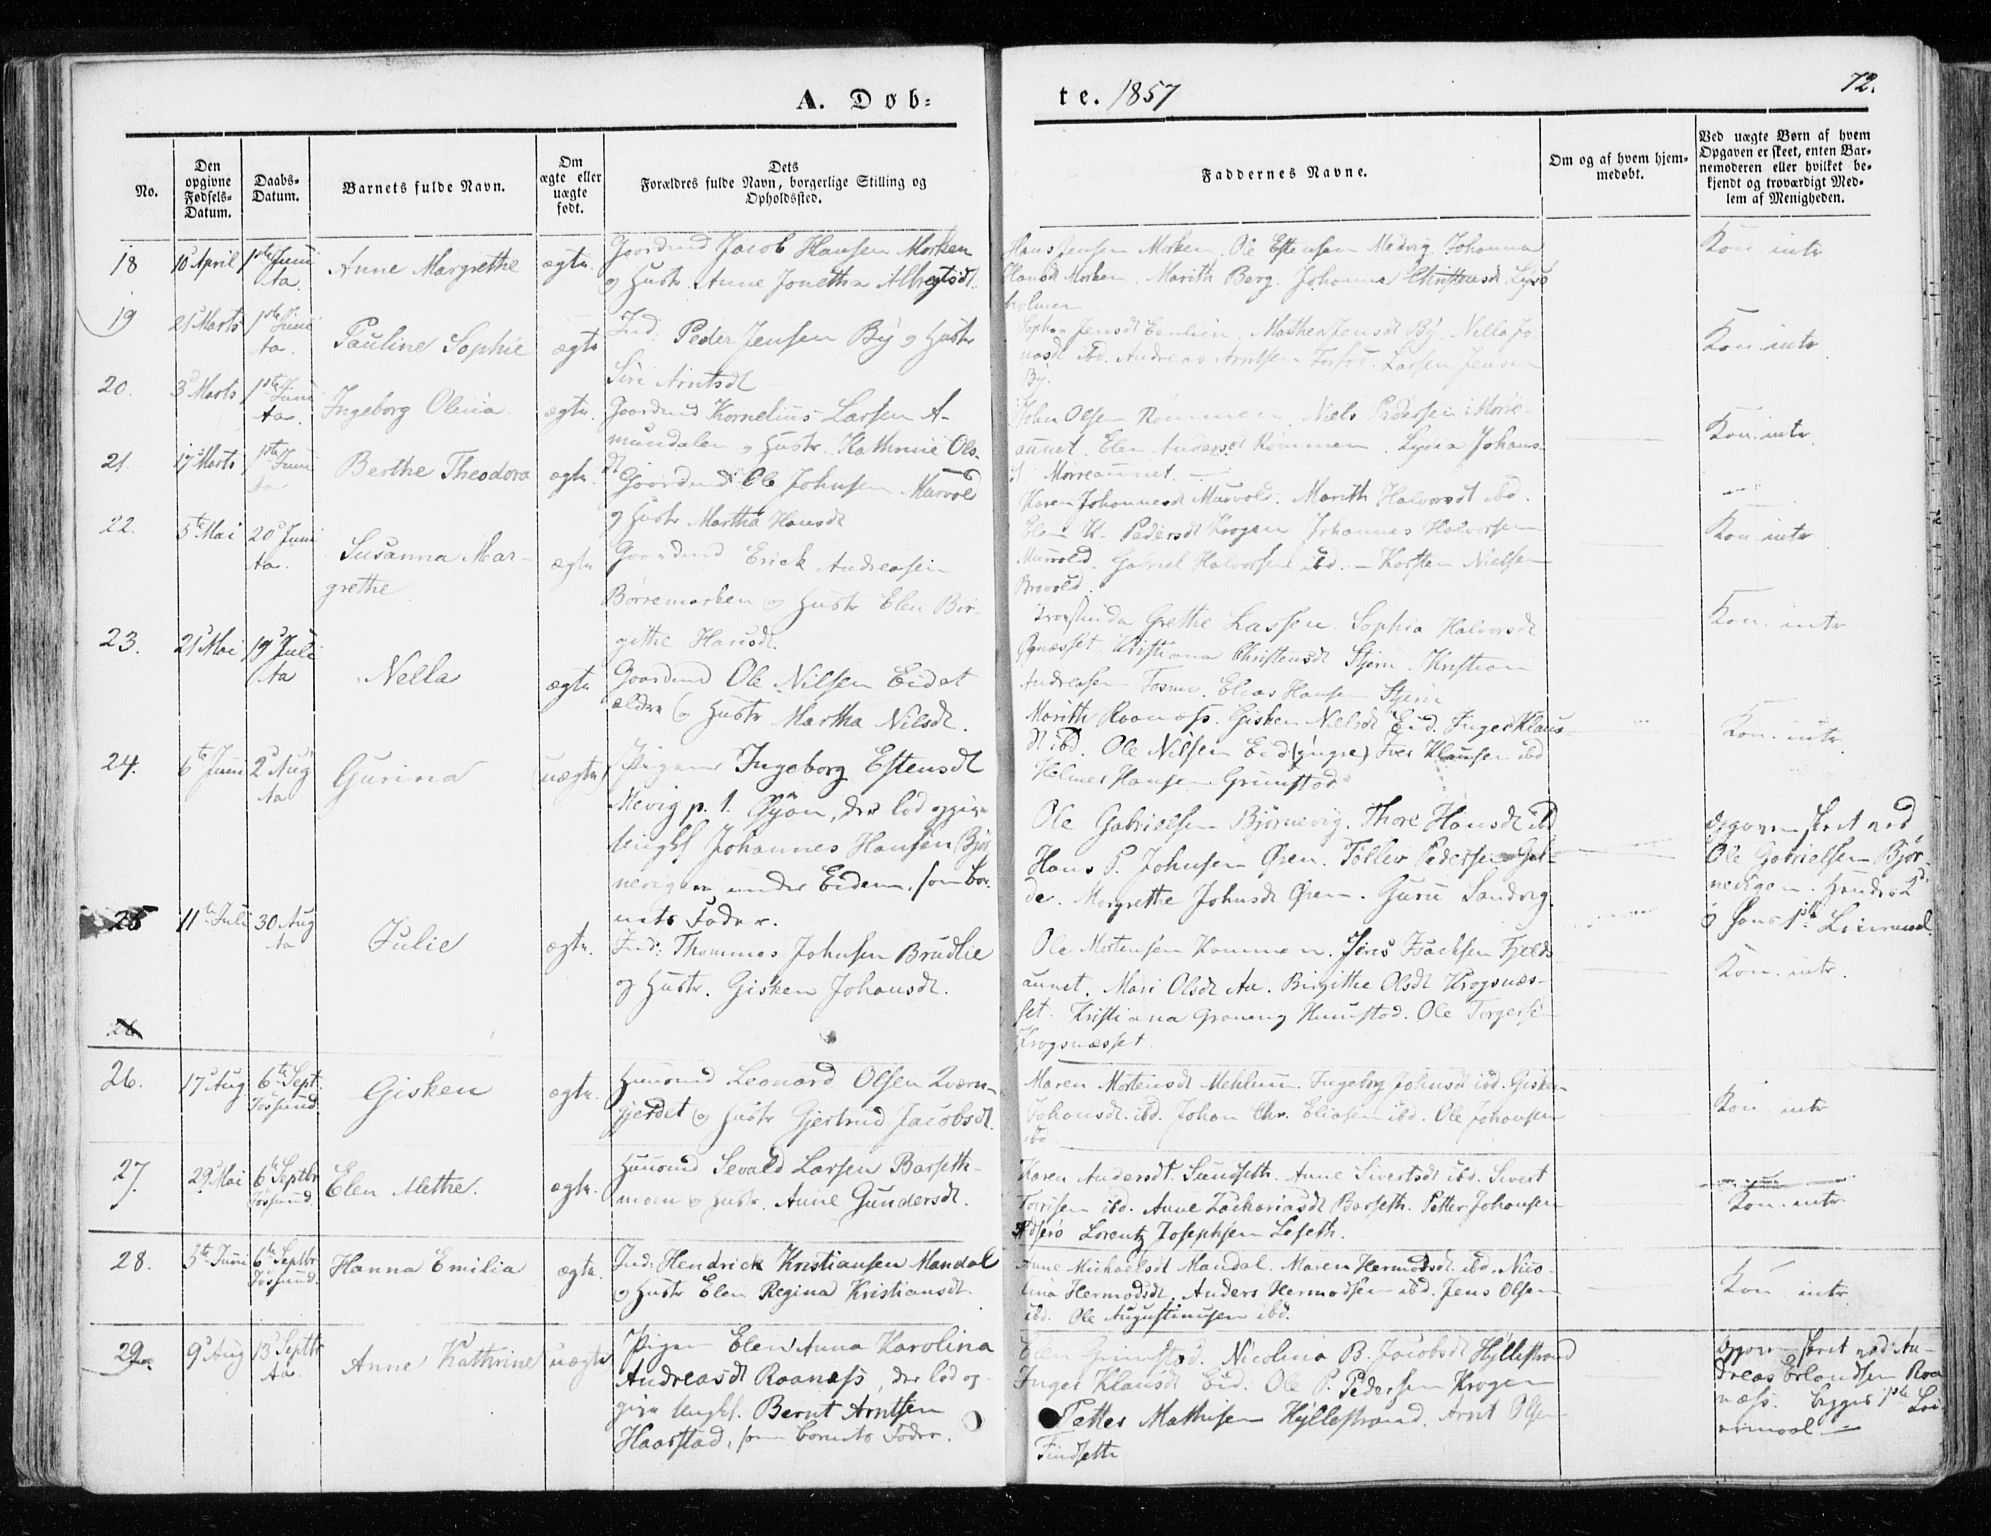 A. Døb-
te. 1857
72.
No.
Den opgivne Fødsels-Datum.
Daabs-Datum.
Barnets fulde Navn.
Om ægte eller uægte født.
Dets
Forældres fulde Navn, borgerlige Stilling og
Opholdssted.
Faddernes Navne.
Om og af hvem hjem-
medøbt.
Ved uægte Børn af hvem
Opgaven er skeet, enten Bar-
nemoderen eller hvilket be-
kjendt og troværdigt Med-
lem af Menigheden.
18 10 April 1ste Juni Aa. Anne Margrethe ægte
Gaardmd Jacob Hansen Morken
og Hustr. Anne Jonetha Albregtsdt.
Hans Jensen Morken. Ole Estensen Medvig. Johanna
Hansdt Morken. Marith Berg. Johanna Christensdt Lysø
holmen
Kon. intr
19 21 Marts 1ste Juni Aa. Pauline Sophie ægte
Ind. Peder Jensen By og Hustr
Siri Arntsdt
Jensdt By. Nella Jo
nasdt ibd. Andreas Arntsen Larsen Jensen
By.
Kon. intr
20. 3 Marts 1ste Juni Aa. Ingeborg Olina ægte.
Gaardmd Kornelius Larsen A-
mundalen og Hustr. Kathrine Ols-
dt
John Olsen Rømmen. Niels Pedersen Mørre-
aunet. Elen Andersdt Rømmen. Johans-
dt. Mørreaunet.
Kon. intr
21. 17 Marts 1ste Juni Aa Berthe Theodora ægte.
Gaardmd Ole Johnsen Murvold
og Hustr Martha Hansdt
Karen Johannesdt Murvold. Marith Halvorsdt ibd.
Pedersdt Krogen Johannes Halvorsen
Murvold. Gabriel Halvorsen ibd. Nielsen
Kon. intr
22. 5te Mai 20 Juni Aa. Susanna Mar-
grethe ægte
Gaardmd Erick Andreasen
Børremarken og Hustr Elen Bir-
gitte Hansdt.
Grethe Lassen. Sophia Halvorsdt
Kristiana Christensdt Stjern. Kristian
Andreasen Fosmo. Elias Hansen Stjern
Kon. intr
23. 21 Mai 19 Juli Aa Nella ægte
Gaardmd Ole Nilsen Eidet
ældre og Hustr Martha Nilsdt.
Marith Roanæss. Gisken Nielsdt Eid. Inger Klaus-
dt ibd. Ole Nilsen Eid (yngre) Iver Klausen ibd
Helmer Hansen Grimstad
Kon. intr
24. 6te Juni 2 Aug Aa Gurina (uægte)
Pigen Ingeborg Estensdt
Mevig p. t. , der lod opgive
Ungkl Johannes Hansen Bjør
nevigen under Eidem, som bar
nets Fader.
Ole Gabrielsen Bjørnevig. Thore Hansdt ibd
Hans P. Johnsen Øren. Tollev Pedersen Gal-
de. Margrethe Johnsdt Øren. Guru Sandvig.
Opgaven skeet ved
Ole Gabrielsen Bjør-
nevigen. Hendes 2d
og hans 1ste Leiermaal.
25 11te Juli 30 Aug Aa Julie ægte.
Ind: Thommes Johnsen Brudlie
og Hustr. Gisken Johansdt.
Ole Mortensen Hammen. Jens Isacksen Fjelds
aunet. Mari Olsdt Aa. Birgitte Olsdt Krogsnæs-
set. Kristiana Hunnstad. Ole Torgersen
Krogsnæsset.
Kon. intr.
26
26. 17 Aug 6te Sept Jøssund Gisken ægte.
Huusmd Leonard Olsen Qværn-
gjerdet og Hustr Gjertrud Jacobsdt.
Maren Mortensdt Mehlum. Ingeborg Johnsdt ibd. Gisken
Johansdt. ibd. Johan Chr. Eliasen ibd. Ole Johansen
ibd
Kon. intr
27. 29 Mai 6te Septbr Jøssund. Elen Alethe. ægte.
Huusmd Sevald Larsen Barseth-
moen og Hustr. Anne Gundersdt.
Karen Andersdt. Sundseth. Anne Sivertsdt ibd. Sivert
Torrisen ibd. Anne Zachariasdt Barseth. Petter Johansen
Lorentz Josephsen Leseth.
Kon. intr
28. 5te Juni 6te Septbr Jøssund. Hanna Emilia ægte.
Ind: Hendrick Kristiansen Mandal
og Hustr Elen Regina Kristiansdt.
Anne Michaelsdt Mandal. Maren Hermodsdt. ibd. Nico-
lina Hermodsdt. Anders Hermodsen ibd. Jens Olsen
ibd. Ole Augustinusen ibd.
Kon. intr
29. 9 Aug 13 Septbr Aa. Anne Kathrine uægte
Pigen Elen Anna Karolina
Andreasdt Roanæss, der lod op-
give Ungkl. Bernt Arntsen
Haarstad, som barnets Fader.
Elen Grimstad. Nicolina B. Jacobsdt Hyllestrand
Inger Klausdt Eid. Ole P. Pedersen Krogen
Petter Mathisen Hyllestrand. Arnt Olsen
Findseth
Opgaven skeet ved An-
dreas Erlandsen Roa
næss. Begges 1ste Lei
ermaal.